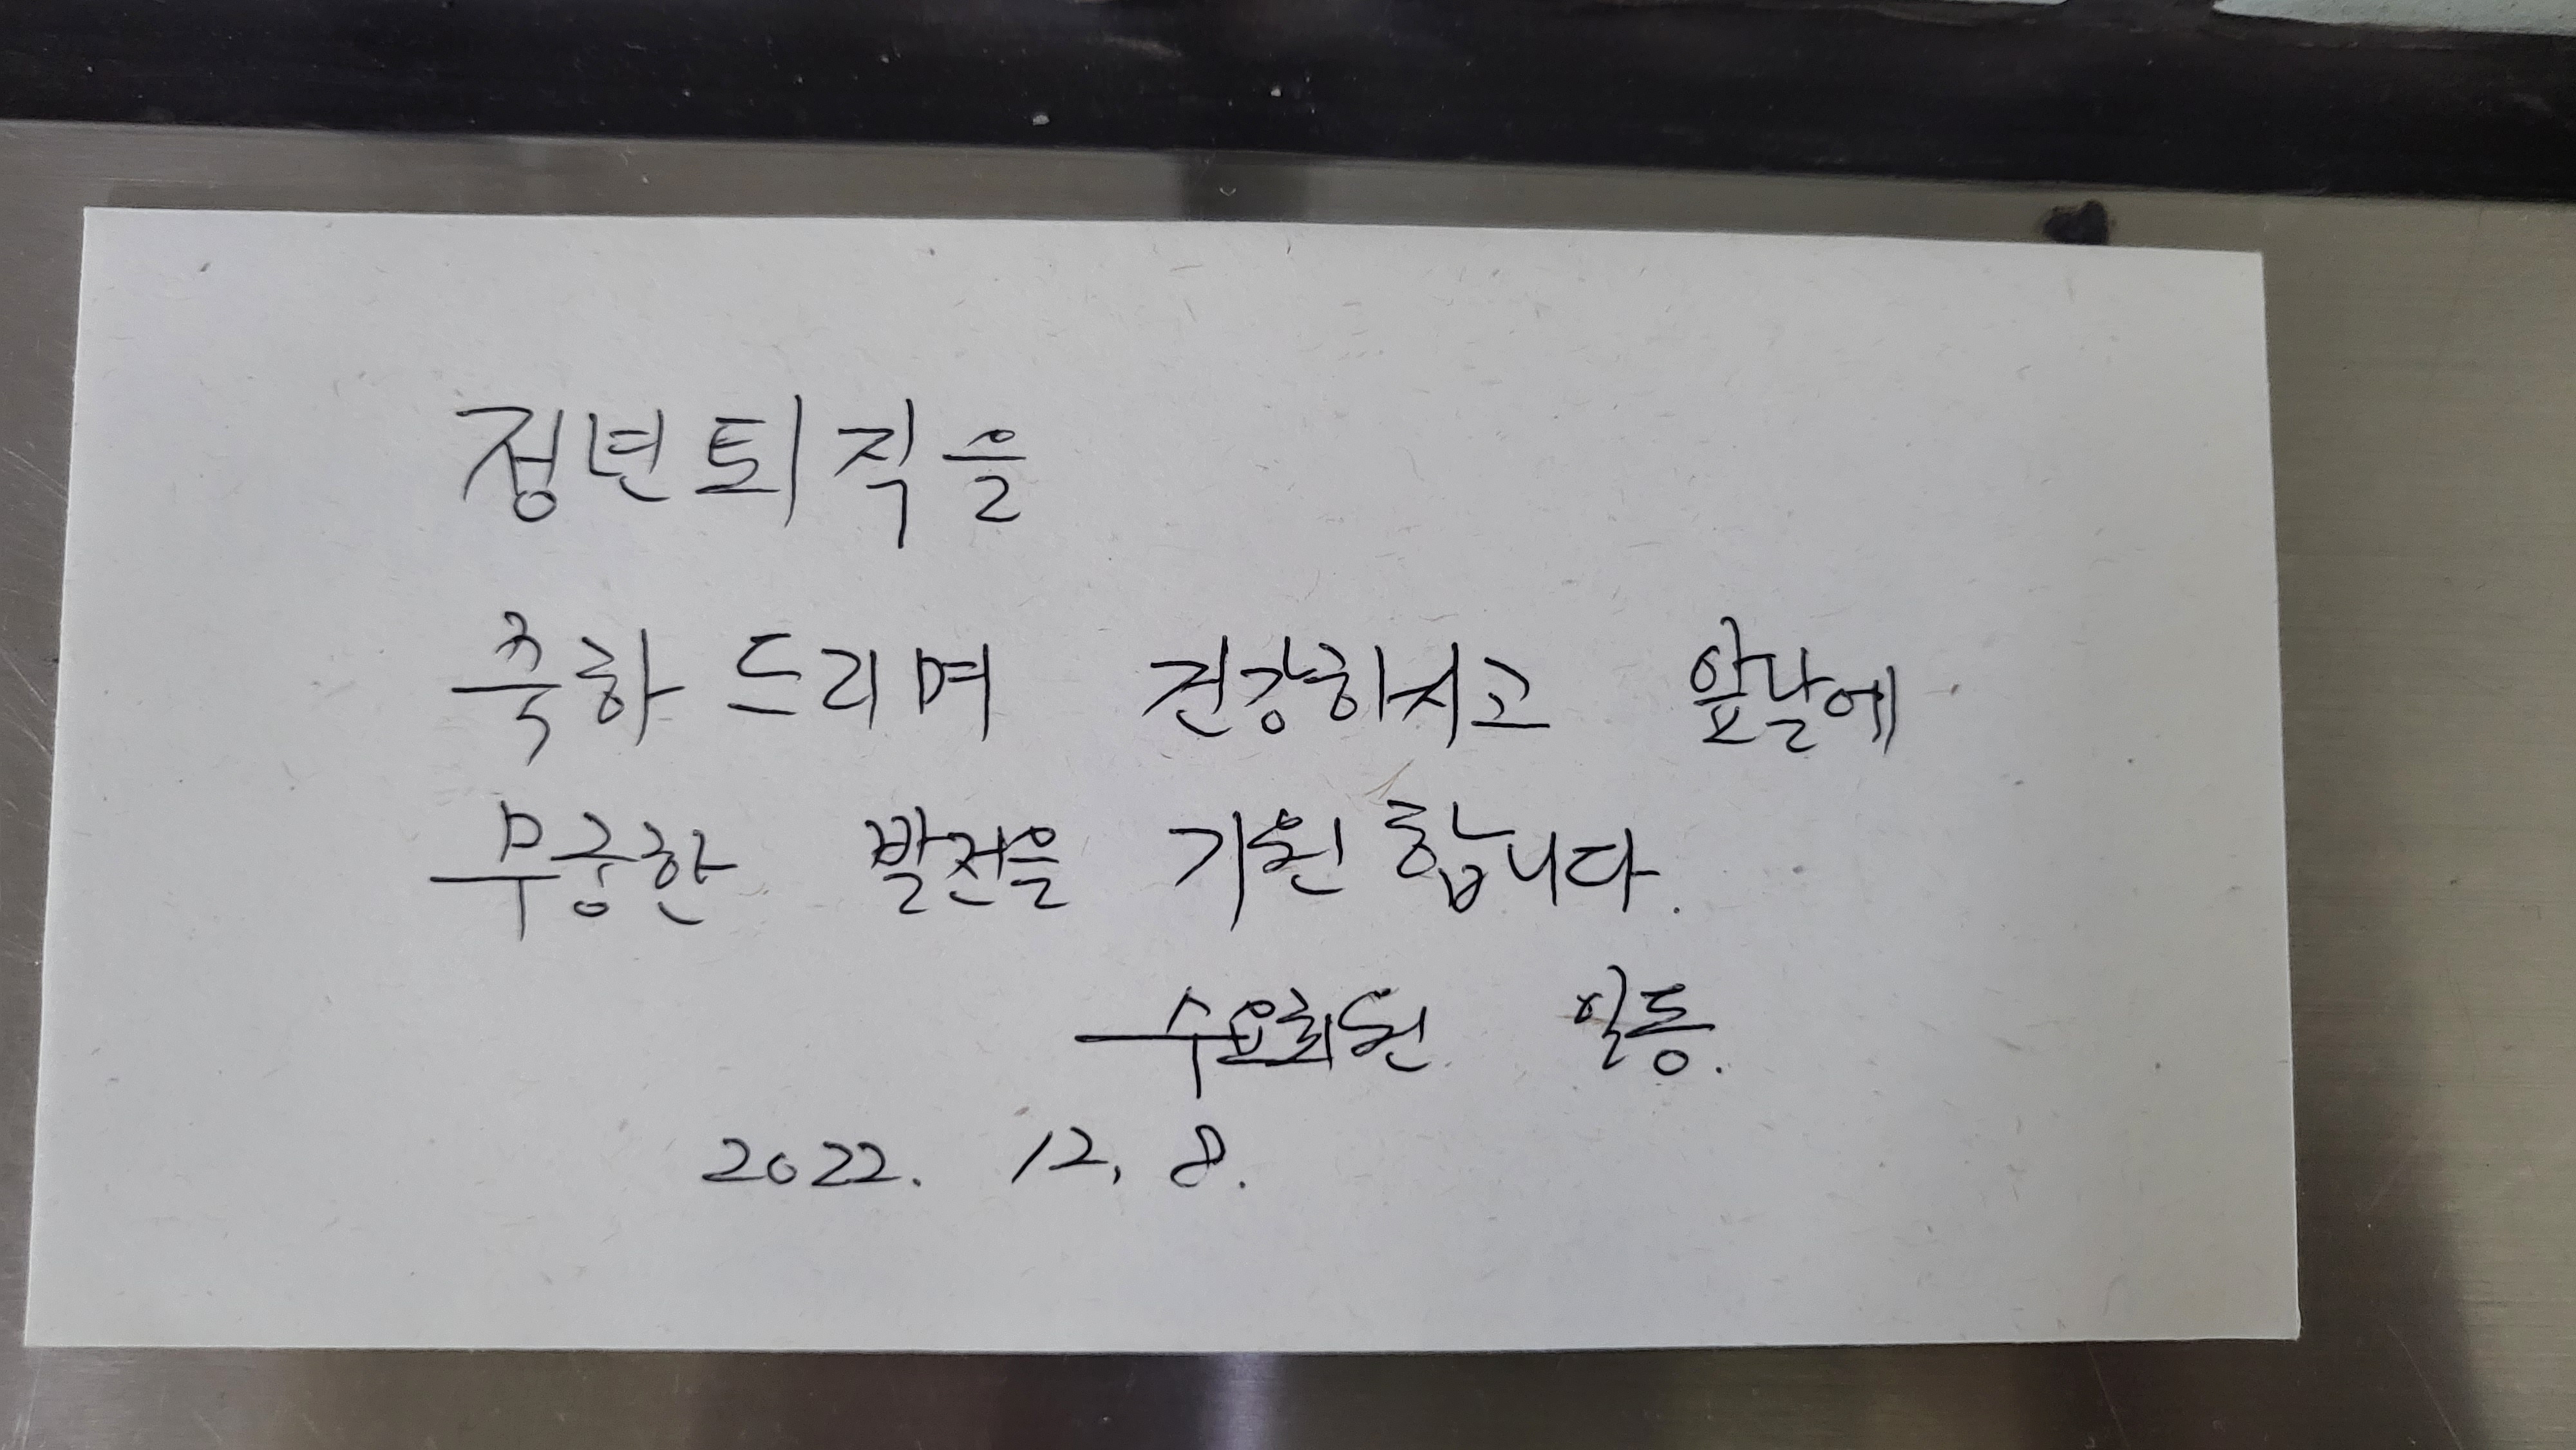 정년퇴직을
축하 드리며 건강하시고 앞날에
무궁한 발전을 기원합니다.
수요회원 일동.
2022. 12, 8.